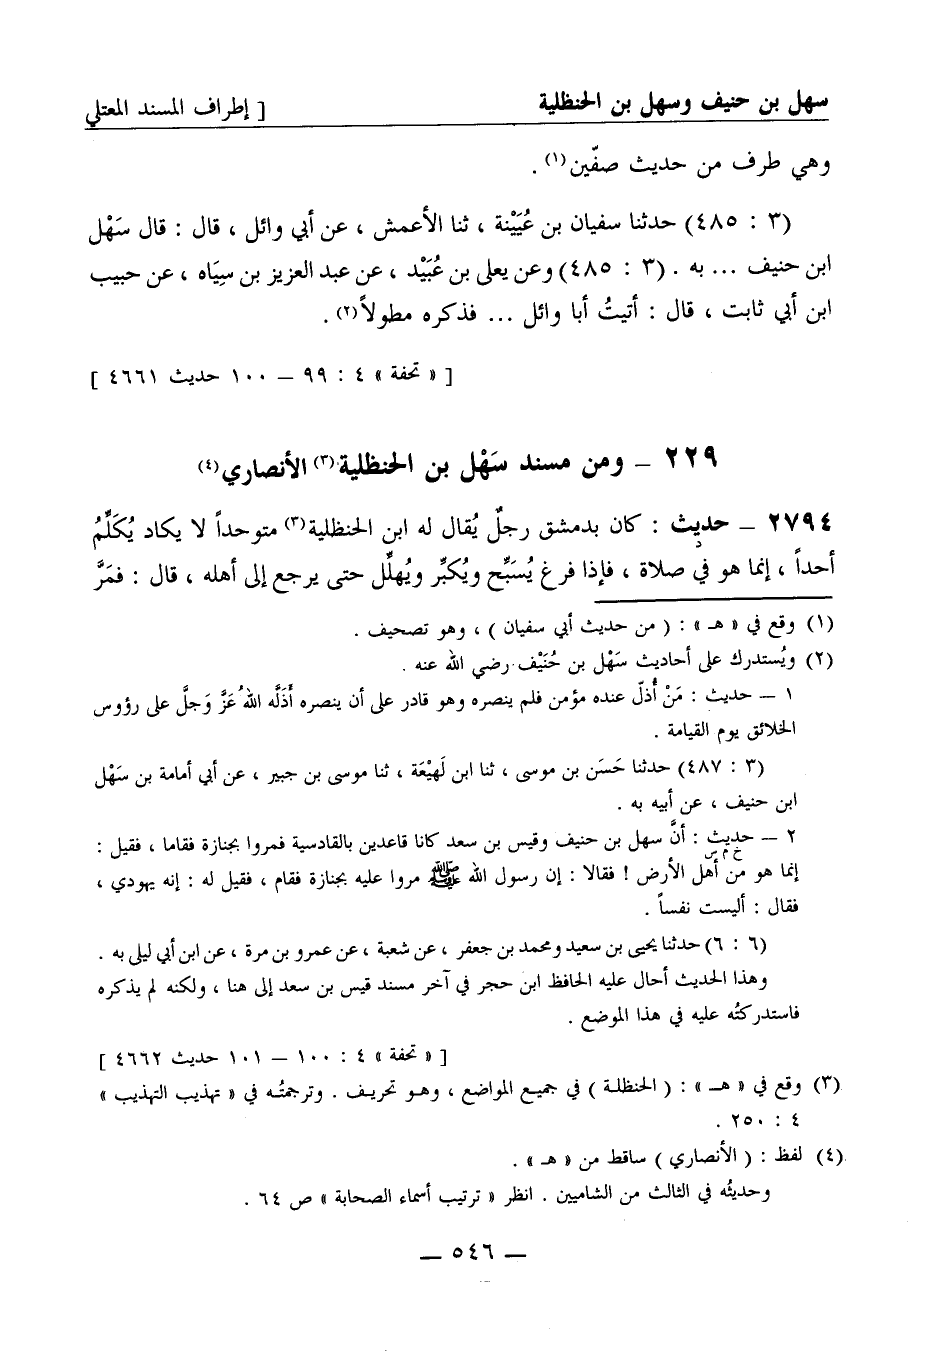 سهل بن حنيف وسهل بن الحنظلية [ إطراف المسند المعتلي
وهي طرف من حديث صفّين(١) .
(٣ : ٤٨٥) حدثنا سفيان بن عُيَيْنة ، ثنا الأعمش ، عن أبي وائل ، قال : قال سَهْل
ابن حنيف ... به . (٣ : ٤٨٥) وعن يعلى بن عُبَيْد ، عن عبد العزيز بن سِيَاه ، عن حبيب
ابن أبي ثابت ، قال : أتيتُ أبا وائل ... فذكره مطولاً(٢) .
[ « تحفة » ٤ : ٩٩ – ١٠٠ حديث ٤٦٦١ ]
٢٢٩ – ومن مسند سَهْل بن الحنظلية(٣) الأنصاري(٤)
٢٧٩٤ – حديث : كان بدمشق رجلٌ يُقال له ابن الحنظلية(٣) متوحداً لا يكاد يُكَلِّمُ
د
أحداً ، إنما هو في صلاة ، فإذا فرغ يُسَبِّح ويُكبِّر ويُهلِّل حتى يرجع إلى أهله ، قال : فمَرَّ
(١) وقع في « هـ » : ( من حديث أبي سفيان ) ، وهو تصحيف .
(٢) ويُستدرك على أحاديث سَهْل بن حُنَيْف رضي الله عنه .
١ – حديث : مَنْ أُذلّ عنده مؤمن فلم ينصره وهو قادر على أن ينصره أَذَلَّه اللهُ عَزَّ وَجلَّ على رؤوس
الخلائق يوم القيامة .
(٣ : ٤٨٧) حدثنا حَسَن بن موسى ، ثنا ابن لَهيْعَة ، ثنا موسى بن جبير ، عن أبي أمامة بن سَهْل
ابن حنيف ، عن أبيه به .
٢ – حديث : أنَّ سهل بن حنيف وقيس بن سعد كانا قاعدين بالقادسية فمروا بجنازة فقاما ، فقيل :
خ م س
إنما هو من أهل الأرض ! فقالا : إن رسول الله ﷺ مروا عليه بجنازة فقام ، فقيل له : إنه يهودي ،
فقال : أليست نفساً .
(٦ : ٦) حدثنا يحيى بن سعيد ومحمد بن جعفر ، عن شعبة ، عن عمرو بن مرة ، عن ابن أبي ليلى به .
وهذا الحديث أحال عليه الحافظ ابن حجر في آخر مسند قيس بن سعد إلى هنا ، ولكنه لم يذكره
فاستدركتُه عليه في هذا الموضع .
[ « تحفة » ٤ : ١٠٠ – ١٠١ حديث ٤٦٦٢ ]
(٣) وقع في « هـ » : ( الحنظلة ) في جميع المواضع ، وهو تحريف . وترجمتُه في « تهذيب التهذيب »
٤ : ٢٥٠ .
(٤) لفظ : ( الأنصاري ) ساقط من « هـ » .
وحديثُه في الثالث من الشاميين . انظر « ترتيب أسماء الصحابة » ص ٦٤ .
– ٥٤٦ –